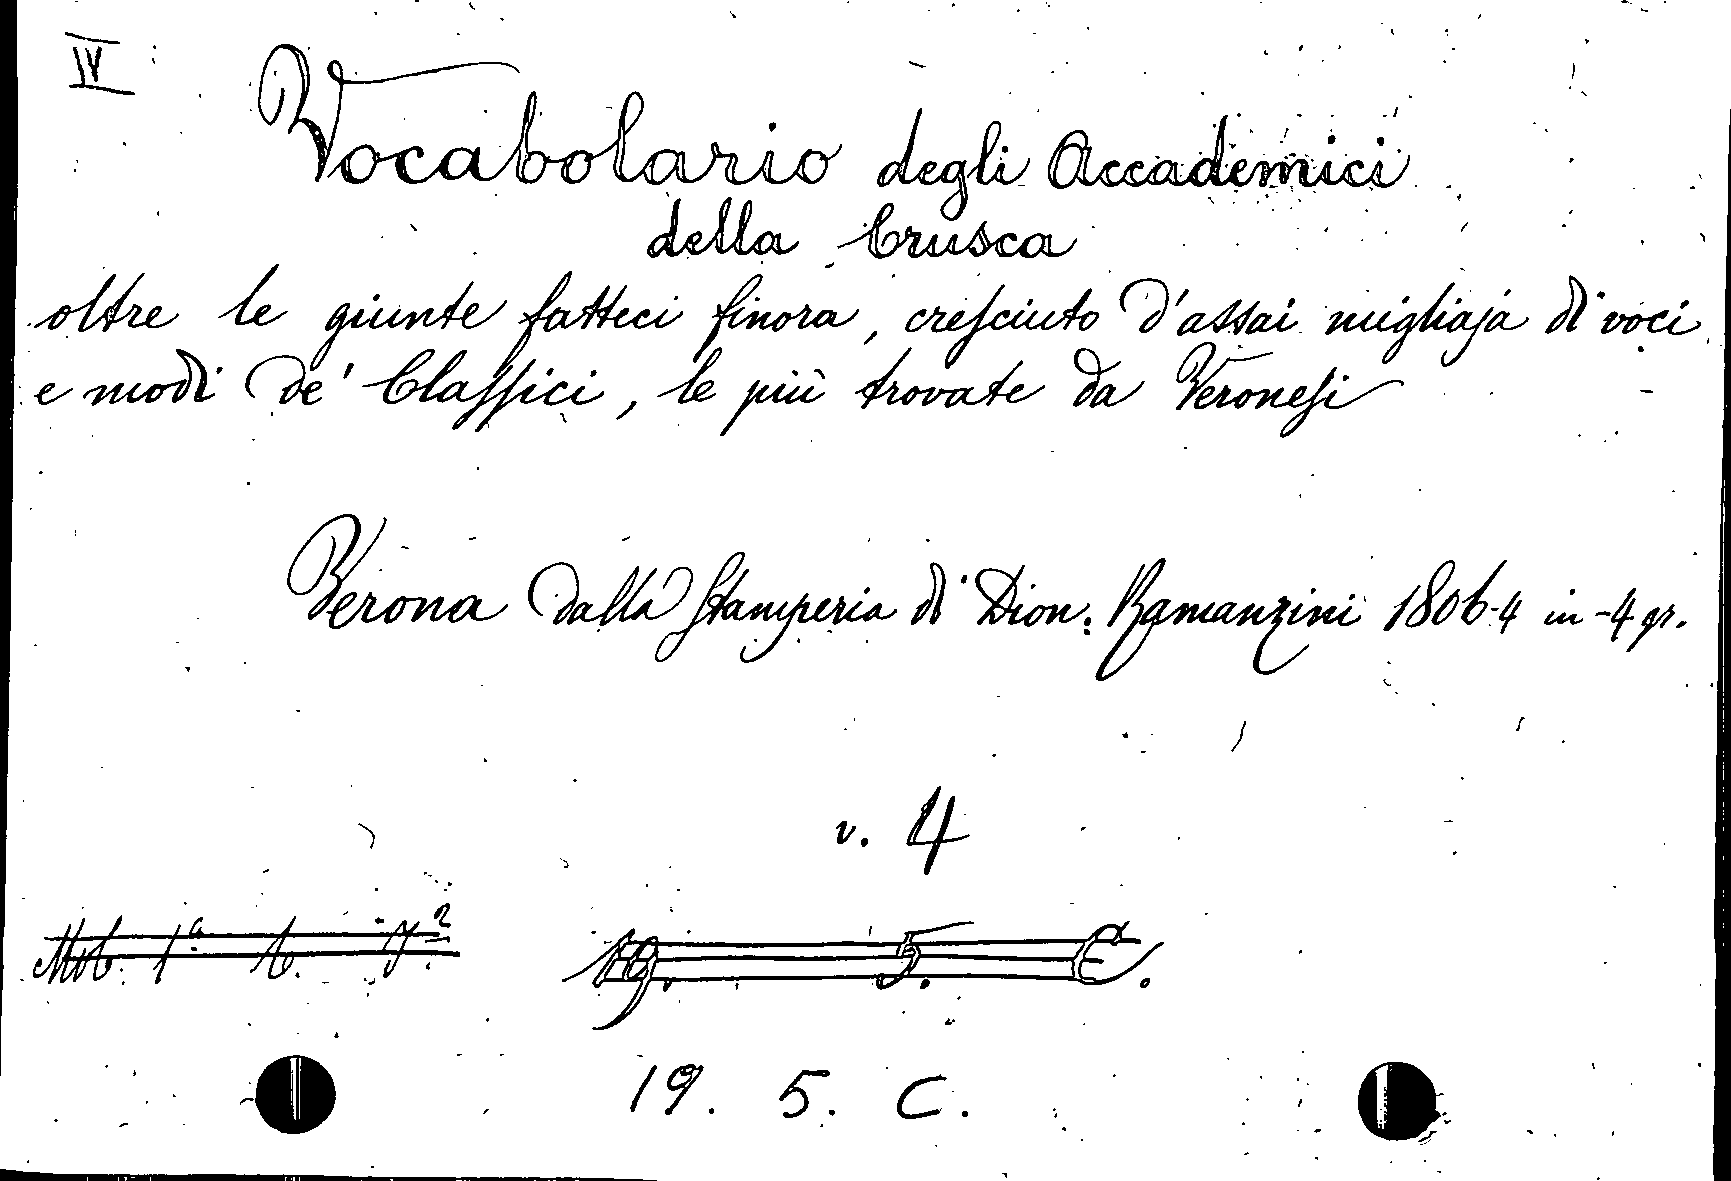 IV
Vocabolario degli Accademici
della Crusca
oltre le giunte fatteci finora, cresciuto d'assai migliaja di voci
e modi de' Classici, le più trovate da Veronesi
Verona dalla Stamperia di Dion. Ramanzini 1806-4 in-4 gr.
v. 4
19. 5. C.
19. 5. C.